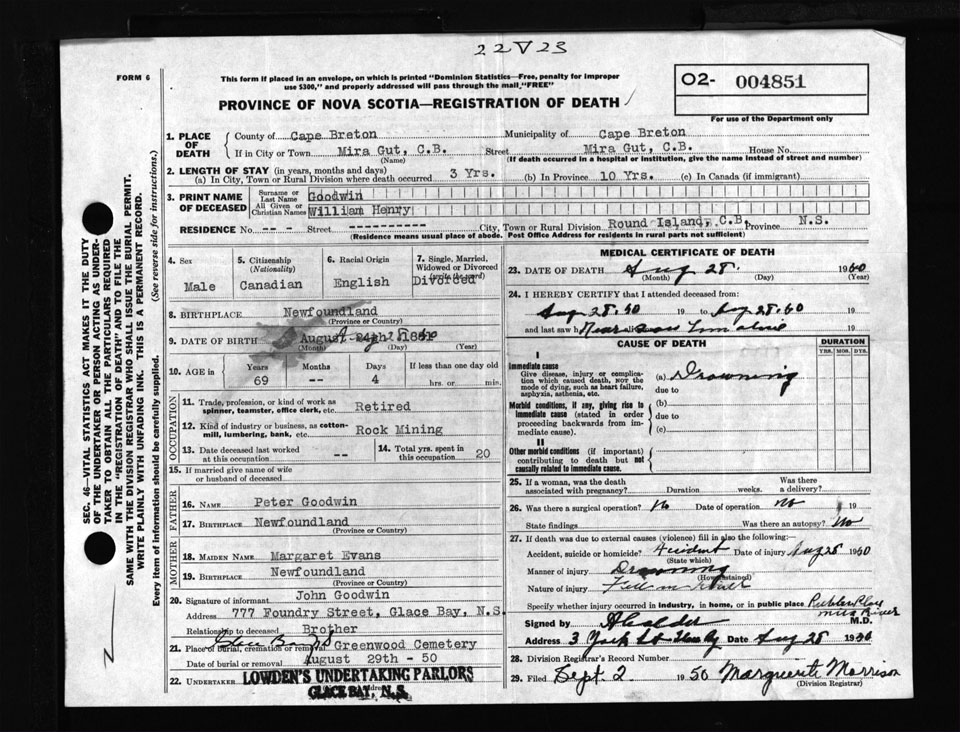 22 V 23
FORM 6
This form if placed in an envelope, on which is printed "Dominion Statistics—Free, penalty for improper
use $300," and properly addressed will pass through the mail "FREE"
PROVINCE OF NOVA SCOTIA—REGISTRATION OF DEATH
02- 004851
For use of the Department only
SEC. 46—VITAL STATISTICS ACT MAKES IT THE DUTY
OF THE UNDERTAKER OR PERSON ACTING AS UNDER-
TAKER TO OBTAIN ALL THE PARTICULARS REQUIRED
IN THE "REGISTRATION OF DEATH" AND TO FILE THE
SAME WITH THE DIVISION REGISTRAR WHO SHALL ISSUE THE BURIAL PERMIT.
WRITE PLAINLY WITH UNFADING INK. THIS IS A PERMANENT RECORD.
Every item of information should be carefully supplied. (See reverse side for instructions.)
1. PLACE OF DEATH County of Cape Breton Municipality of Cape Breton
If in City or Town Mira Gut, C.B. Street Mira Gut, C.B. House No.
(Name) (If death occurred in a hospital or institution, give the name instead of street and number)
2. LENGTH OF STAY (in years, months and days)
(a) In City, Town or Rural Division where death occurred 3 Yrs. (b) In Province 10 Yrs. (c) In Canada (if immigrant)
3. PRINT NAME OF DECEASED Surname or Last Name Goodwin
All Given or Christian Names William Henry
RESIDENCE No. -- - Street ----------- City, Town or Rural Division Round Island, C.B. Province N.S.
(Residence means usual place of abode. Post Office Address for residents in rural parts not sufficient)
4. Sex Male
5. Citizenship (Nationality) Canadian
6. Racial Origin English
7. Single, Married, Widowed or Divorced (write the word) Divorced
8. BIRTHPLACE Newfoundland
(Province or Country)
9. DATE OF BIRTH August 24th 1881
(Month) (Day) (Year)
10. AGE in Years 69 Months -- Days 4 If less than one day old hrs. or min.
OCCUPATION
11. Trade, profession, or kind of work as spinner, teamster, office clerk, etc. Retired
12. Kind of industry or business, as cotton-mill, lumbering, bank, etc. Rock Mining
13. Date deceased last worked at this occupation --
14. Total yrs. spent in this occupation 20
15. If married give name of wife or husband of deceased
FATHER
16. NAME Peter Goodwin
17. BIRTHPLACE Newfoundland
(Province or Country)
MOTHER
18. MAIDEN NAME Margaret Evans
19. BIRTHPLACE Newfoundland
(Province or Country)
20. Signature of informant John Goodwin
Address 777 Foundry Street, Glace Bay, N.S.
Relationship to deceased Brother
21. Place of burial, cremation or removal Glace B. N.S. Greenwood Cemetery
Date of burial or removal August 29th - 50
22. UNDERTAKER LOWDEN'S UNDERTAKING PARLORS
GLACE BAY, N.S.
MEDICAL CERTIFICATE OF DEATH
23. DATE OF DEATH Aug 28 1950
(Month) (Day) (Year)
24. I HEREBY CERTIFY that I attended deceased from:
Aug 28.50 19 to Aug 28.50 19
and last saw h alive 19
CAUSE OF DEATH DURATION
YRS. MOS. DYS.
I
Immediate cause
Give disease, injury or complication which caused death, not the mode of dying, such as heart failure, asphyxia, asthenia, etc.
(a) Drowning
due to
Morbid conditions, if any, giving rise to immediate cause (stated in order proceeding backwards from immediate cause).
(b)
due to
(c)
II
Other morbid conditions (if important) contributing to death but not causally related to immediate cause.
25. If a woman, was the death associated with pregnancy? Duration weeks. Was there a delivery?
26. Was there a surgical operation? No Date of operation no 19
State findings Was there an autopsy? No
27. If death was due to external causes (violence) fill in also the following:—
Accident, suicide or homicide? Accident Date of injury Aug 28 1950
(State which)
Manner of injury Drowning
(How sustained)
Nature of injury
Specify whether injury occurred in industry, in home, or in public place Public Place
Mira River
Signed by M.D.
Address 3 York St Date Aug 28 1950
28. Division Registrar's Record Number
29. Filed Sept. 2 1950 Marguerite Morrison
(Division Registrar)